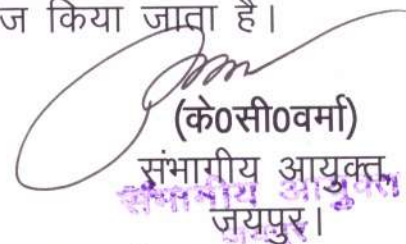 ज किया जाता है।
(के0सी0वर्मा)
संभागीय आयुक्त,
संभागीय आयुक्त
जयपुर।